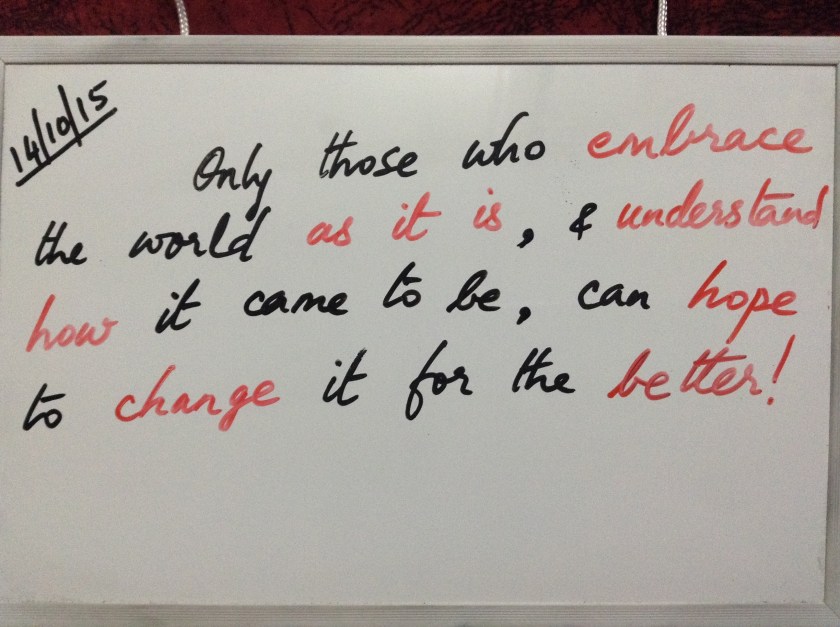 14/10/15
Only those who embrace
the world as it is, & understand
how it came to be, can hope
to change it for the better!